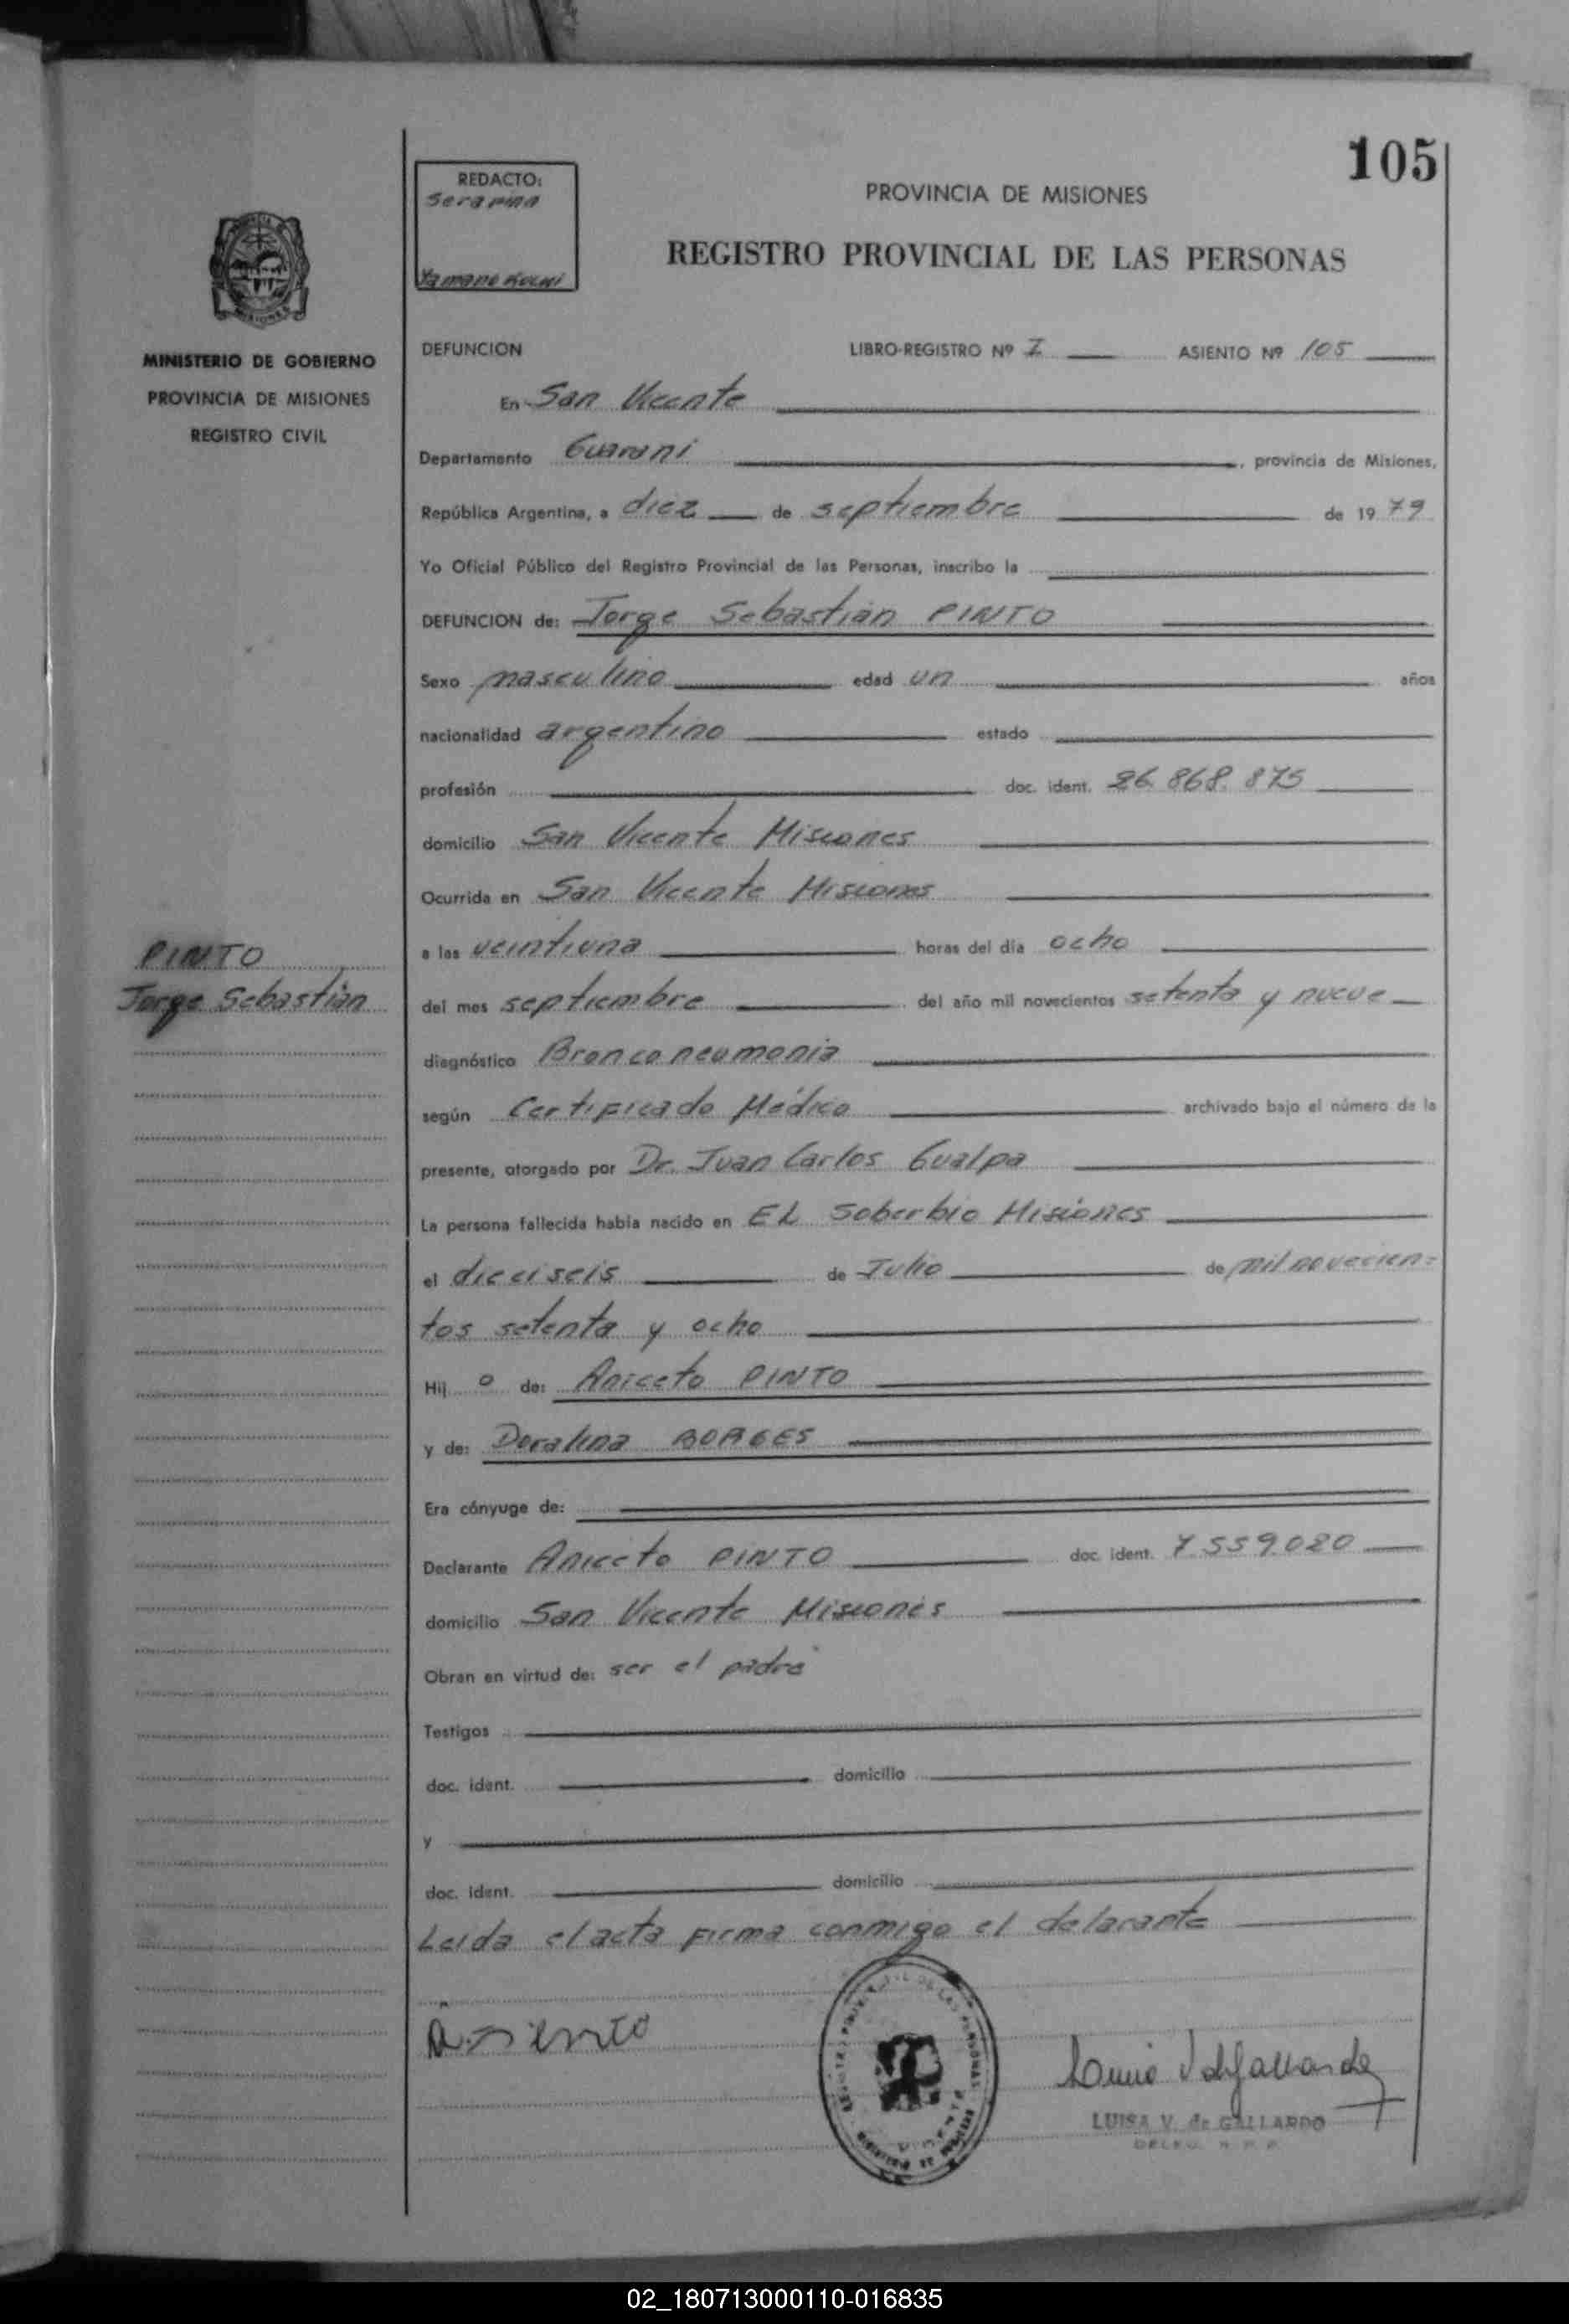 105
REDACTO:
Serapina
Yamane Kuchi
PROVINCIA DE MISIONES
REGISTRO PROVINCIAL DE LAS PERSONAS
MINISTERIO DE GOBIERNO
PROVINCIA DE MISIONES
REGISTRO CIVIL
DEFUNCION LIBRO-REGISTRO Nº I ASIENTO Nº 105
En San Vicente
Departamento Guarani, provincia de Misiones,
República Argentina, a diez de septiembre de 19 79
Yo Oficial Público del Registro Provincial de las Personas, inscribo la
DEFUNCION de: Jorge Sebastián PINTO
Sexo masculino edad un años
nacionalidad argentino estado
profesión doc. ident. 26.868.875
domicilio San Vicente Misiones
Ocurrida en San Vicente Misiones
PINTO
Jorge Sebastián
a las veintiuna horas del día ocho
del mes septiembre del año mil novecientos setenta y nueve
diagnóstico Bronconeumonia
según Certificado Médico archivado bajo el número de la
presente, otorgado por Dr. Juan Carlos Gualpa
La persona fallecida había nacido en EL Soberbio Misiones
el dieciseis de Julio de mil novecien=
tos setenta y ocho
Hij o de: Aniceto PINTO
y de: Doralina BORGES
Era cónyuge de:
Declarante Aniceto PINTO doc. ident. 7.559.020
domicilio San Vicente Misiones
Obran en virtud de: ser el padre
Testigos
doc. ident. domicilio
y
doc. ident. domicilio
Leida el acta firma conmigo el delarante
LUISA V. de GALLARDO
02_180713000110-016835